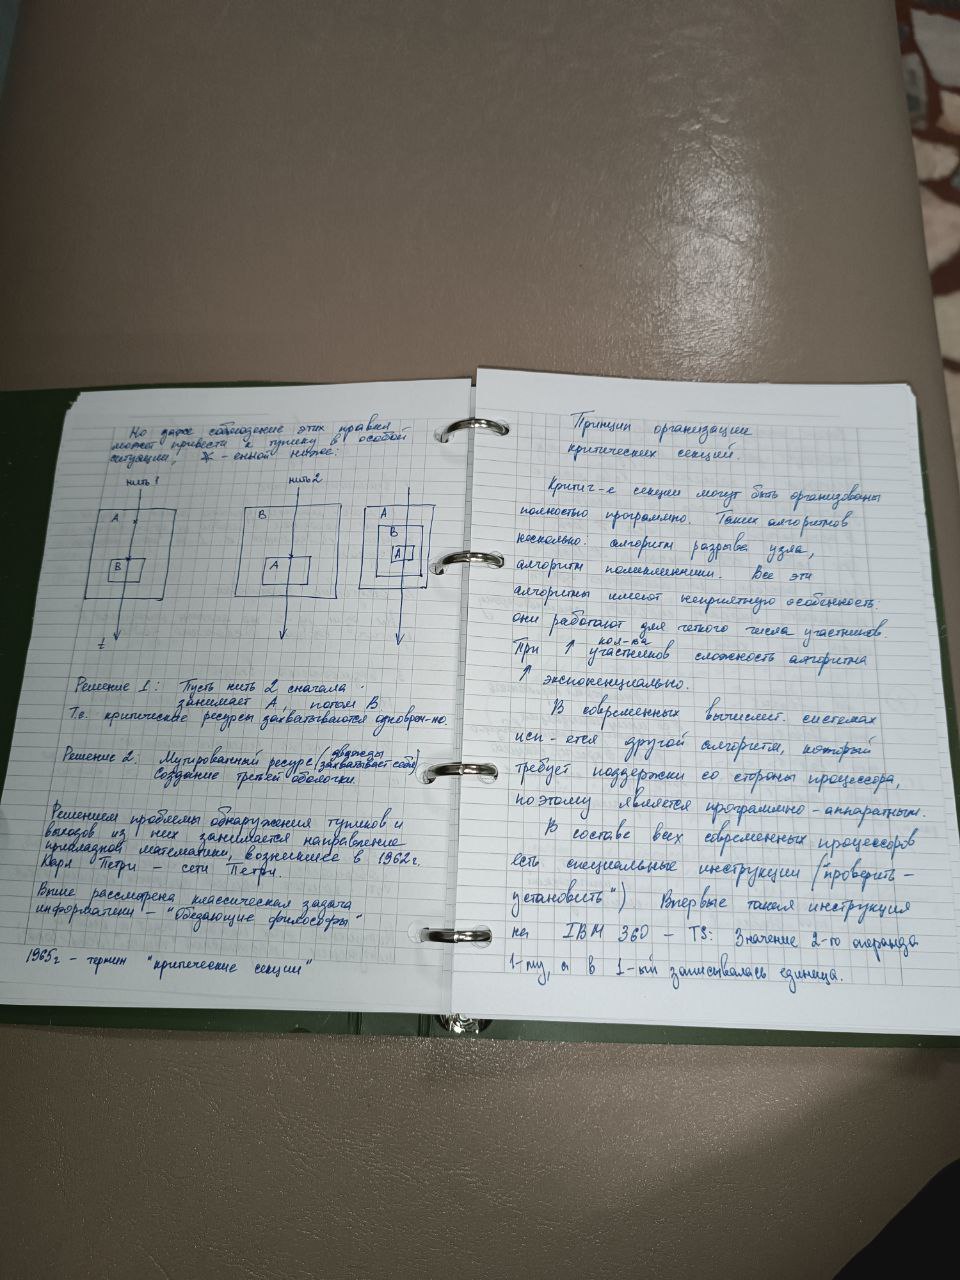 Но даже соблюдение этих правил
может привести к тупику в особой
ситуации, Ж-енной ниже:
нить 1
нить 2
A
B
B
A
A
B
A
t
Решение 1: Пусть нить 2 сначала
занимает A, потом B
Т.е. критические ресурсы захватываются одноврем-но
Решение 2. Мутированный ресурс (дважды захватывает себя)
Создание третьей оболочки.
Решением проблемы обнаружения тупиков и
выходов из них занимается направление
прикладной математики, возникшее в 1962г.
Карл Петри - сети Петри.
Выше рассмотрена классическая задача
информатики - "Обедающие философы"
1965г - термин "критические секции"
Принцип организации
критических секций.
Критич-е секции могут быть организованы
полностью программно. Таких алгоритмов
несколько: алгоритм разрыва узла,
алгоритм поликлиники. Все эти
алгоритмы имеют неприятную особенность:
они работают для четкого числа участников.
При ↑ кол-ва участников сложность алгоритма
↑ экспоненциально.
В современных вычислит. системах
исп-ется другой алгоритм, который
требует поддержки со стороны процессора,
поэтому является программно-аппаратным.
В составе всех современных процессоров
есть специальные инструкции ("проверить-
установить") Впервые такая инструкция
на IBM 360 - TS: Значение 2-го операнда
1-му, а в 1-ый записывалась единица.